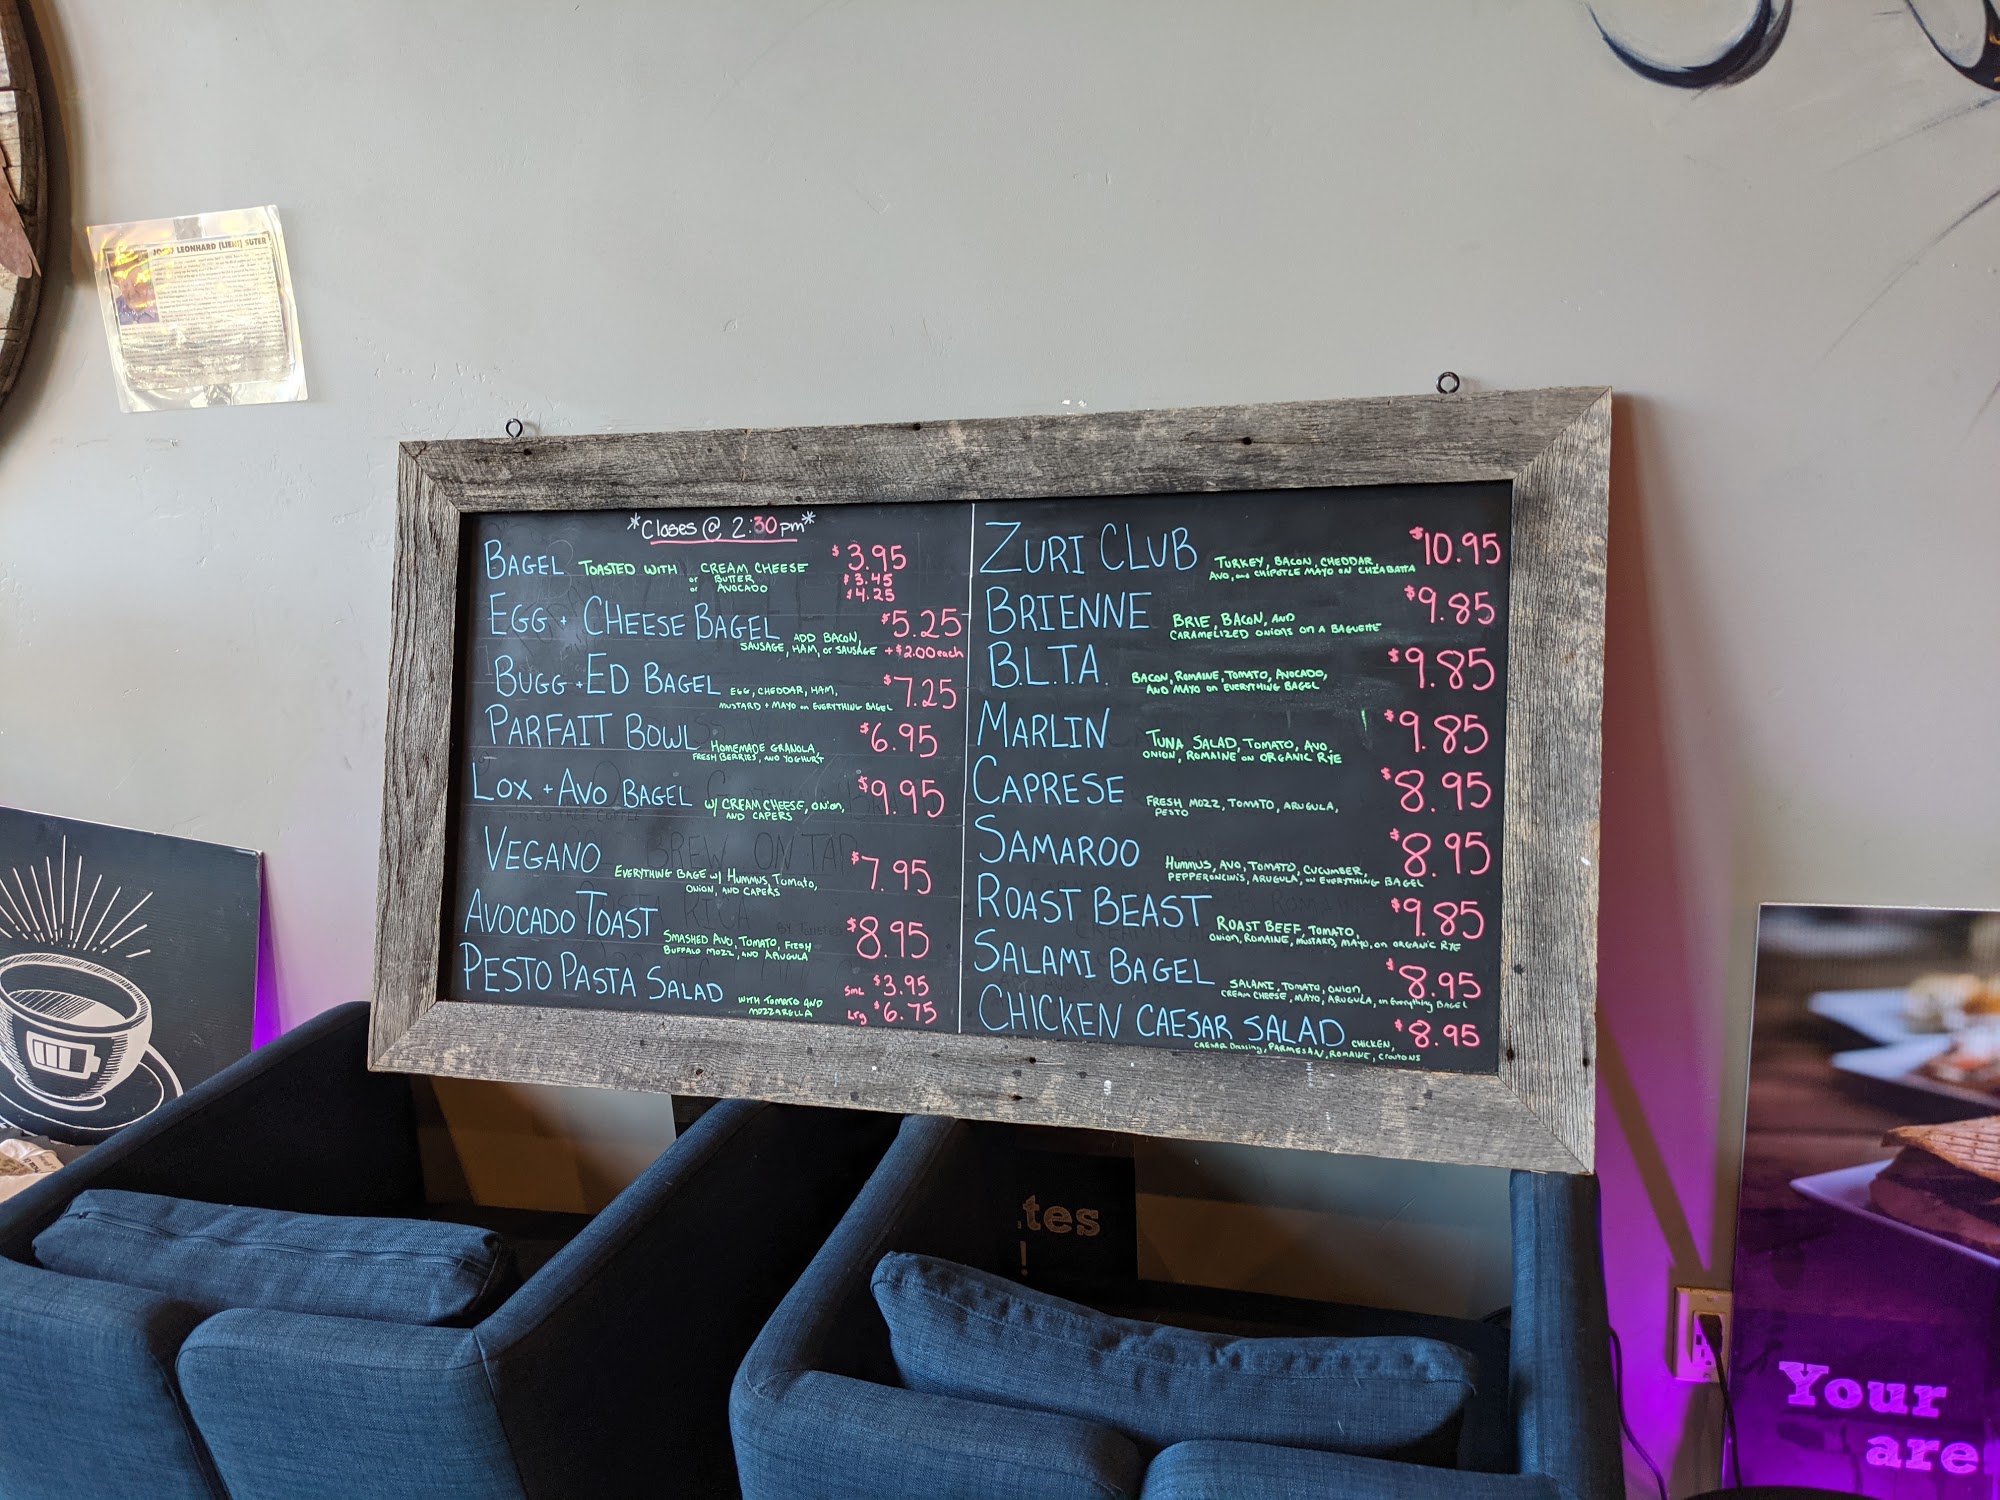 JOSEF LEONHARD (LIENI) SUTER
*Closes @ 2:30pm*
BAGEL TOASTED WITH CREAM CHEESE $3.95
or BUTTER $3.45
or AVOCADO $4.25
EGG + CHEESE BAGEL ADD BACON, $5.25
SAUSAGE, HAM, or SAUSAGE +$2.00 each
BUGG + ED BAGEL EGG, CHEDDAR, HAM, $7.25
MUSTARD + MAYO on EVERYTHING BAGEL
PARFAIT BOWL HOMEMADE GRANOLA, $6.95
FRESH BERRIES, AND YOGHURT
LOX + AVO BAGEL W/ CREAM CHEESE, ONION, $9.95
AND CAPERS
VEGANO EVERYTHING BAGE W/ HUMMUS, TOMATO, $7.95
ONION, AND CAPERS
AVOCADO TOAST SMASHED AVO, TOMATO, FRESH $8.95
BUFFALO MOZZ, AND ARUGULA
PESTO PASTA SALAD WITH TOMATO AND SML $3.95
MOZZARELLA Lrg $6.75
ZURI CLUB TURKEY, BACON, CHEDDAR, $10.95
AVO, and CHIPOTLE MAYO ON CHIABATTA
BRIENNE BRIE, BACON, AND $9.85
CARAMELIZED ONIONS ON A BAGUETTE
B.L.T.A. BACON, ROMAINE, TOMATO, AVOCADO, $9.85
AND MAYO on EVERYTHING BAGEL
MARLIN TUNA SALAD, TOMATO, AVO, $9.85
ONION, ROMAINE on ORGANIC RYE
CAPRESE FRESH MOZZ, TOMATO, ARUGULA, $8.95
PESTO
SAMAROO HUMMUS, AVO, TOMATO, CUCUMBER, $8.95
PEPPERONCINIS, ARUGULA, on EVERYTHING BAGEL
ROAST BEAST ROAST BEEF, TOMATO, $9.85
ONION, ROMAINE, MUSTARD, MAYO, on ORGANIC RYE
SALAMI BAGEL SALAMI, TOMATO, ONION, $8.95
CREAM CHEESE, MAYO, ARUGULA, on Everything BAGEL
CHICKEN CAESAR SALAD CHICKEN, $8.95
CAESAR Dressing, PARMESAN, ROMAINE, CROUTONS
tes
!
Your
are